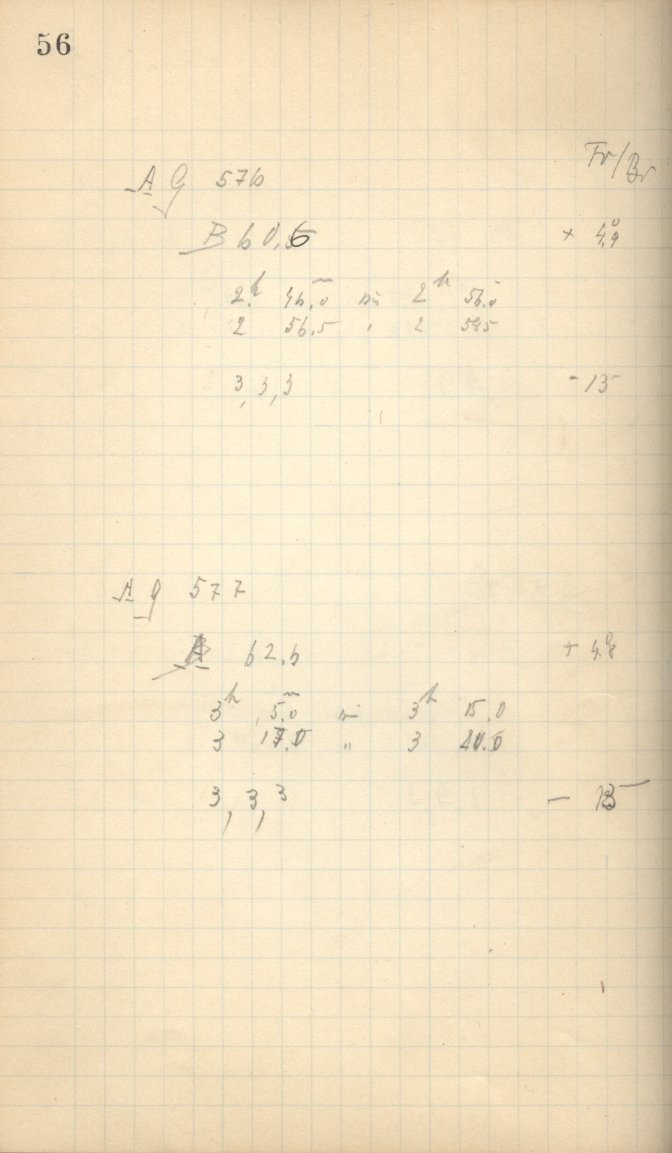 56
Fr/Br
AG 576
B 60.6 + 4.°9
2h 46.m0 bis 2h 56.m0
2 56.5 " 2 59.5
3,3,3 - 15
AG 577
A 62.6 + 4.°8
3h 5.m0 bis 3h 15.0
3 17.0 " 3 20.0
3,3,3 - 15